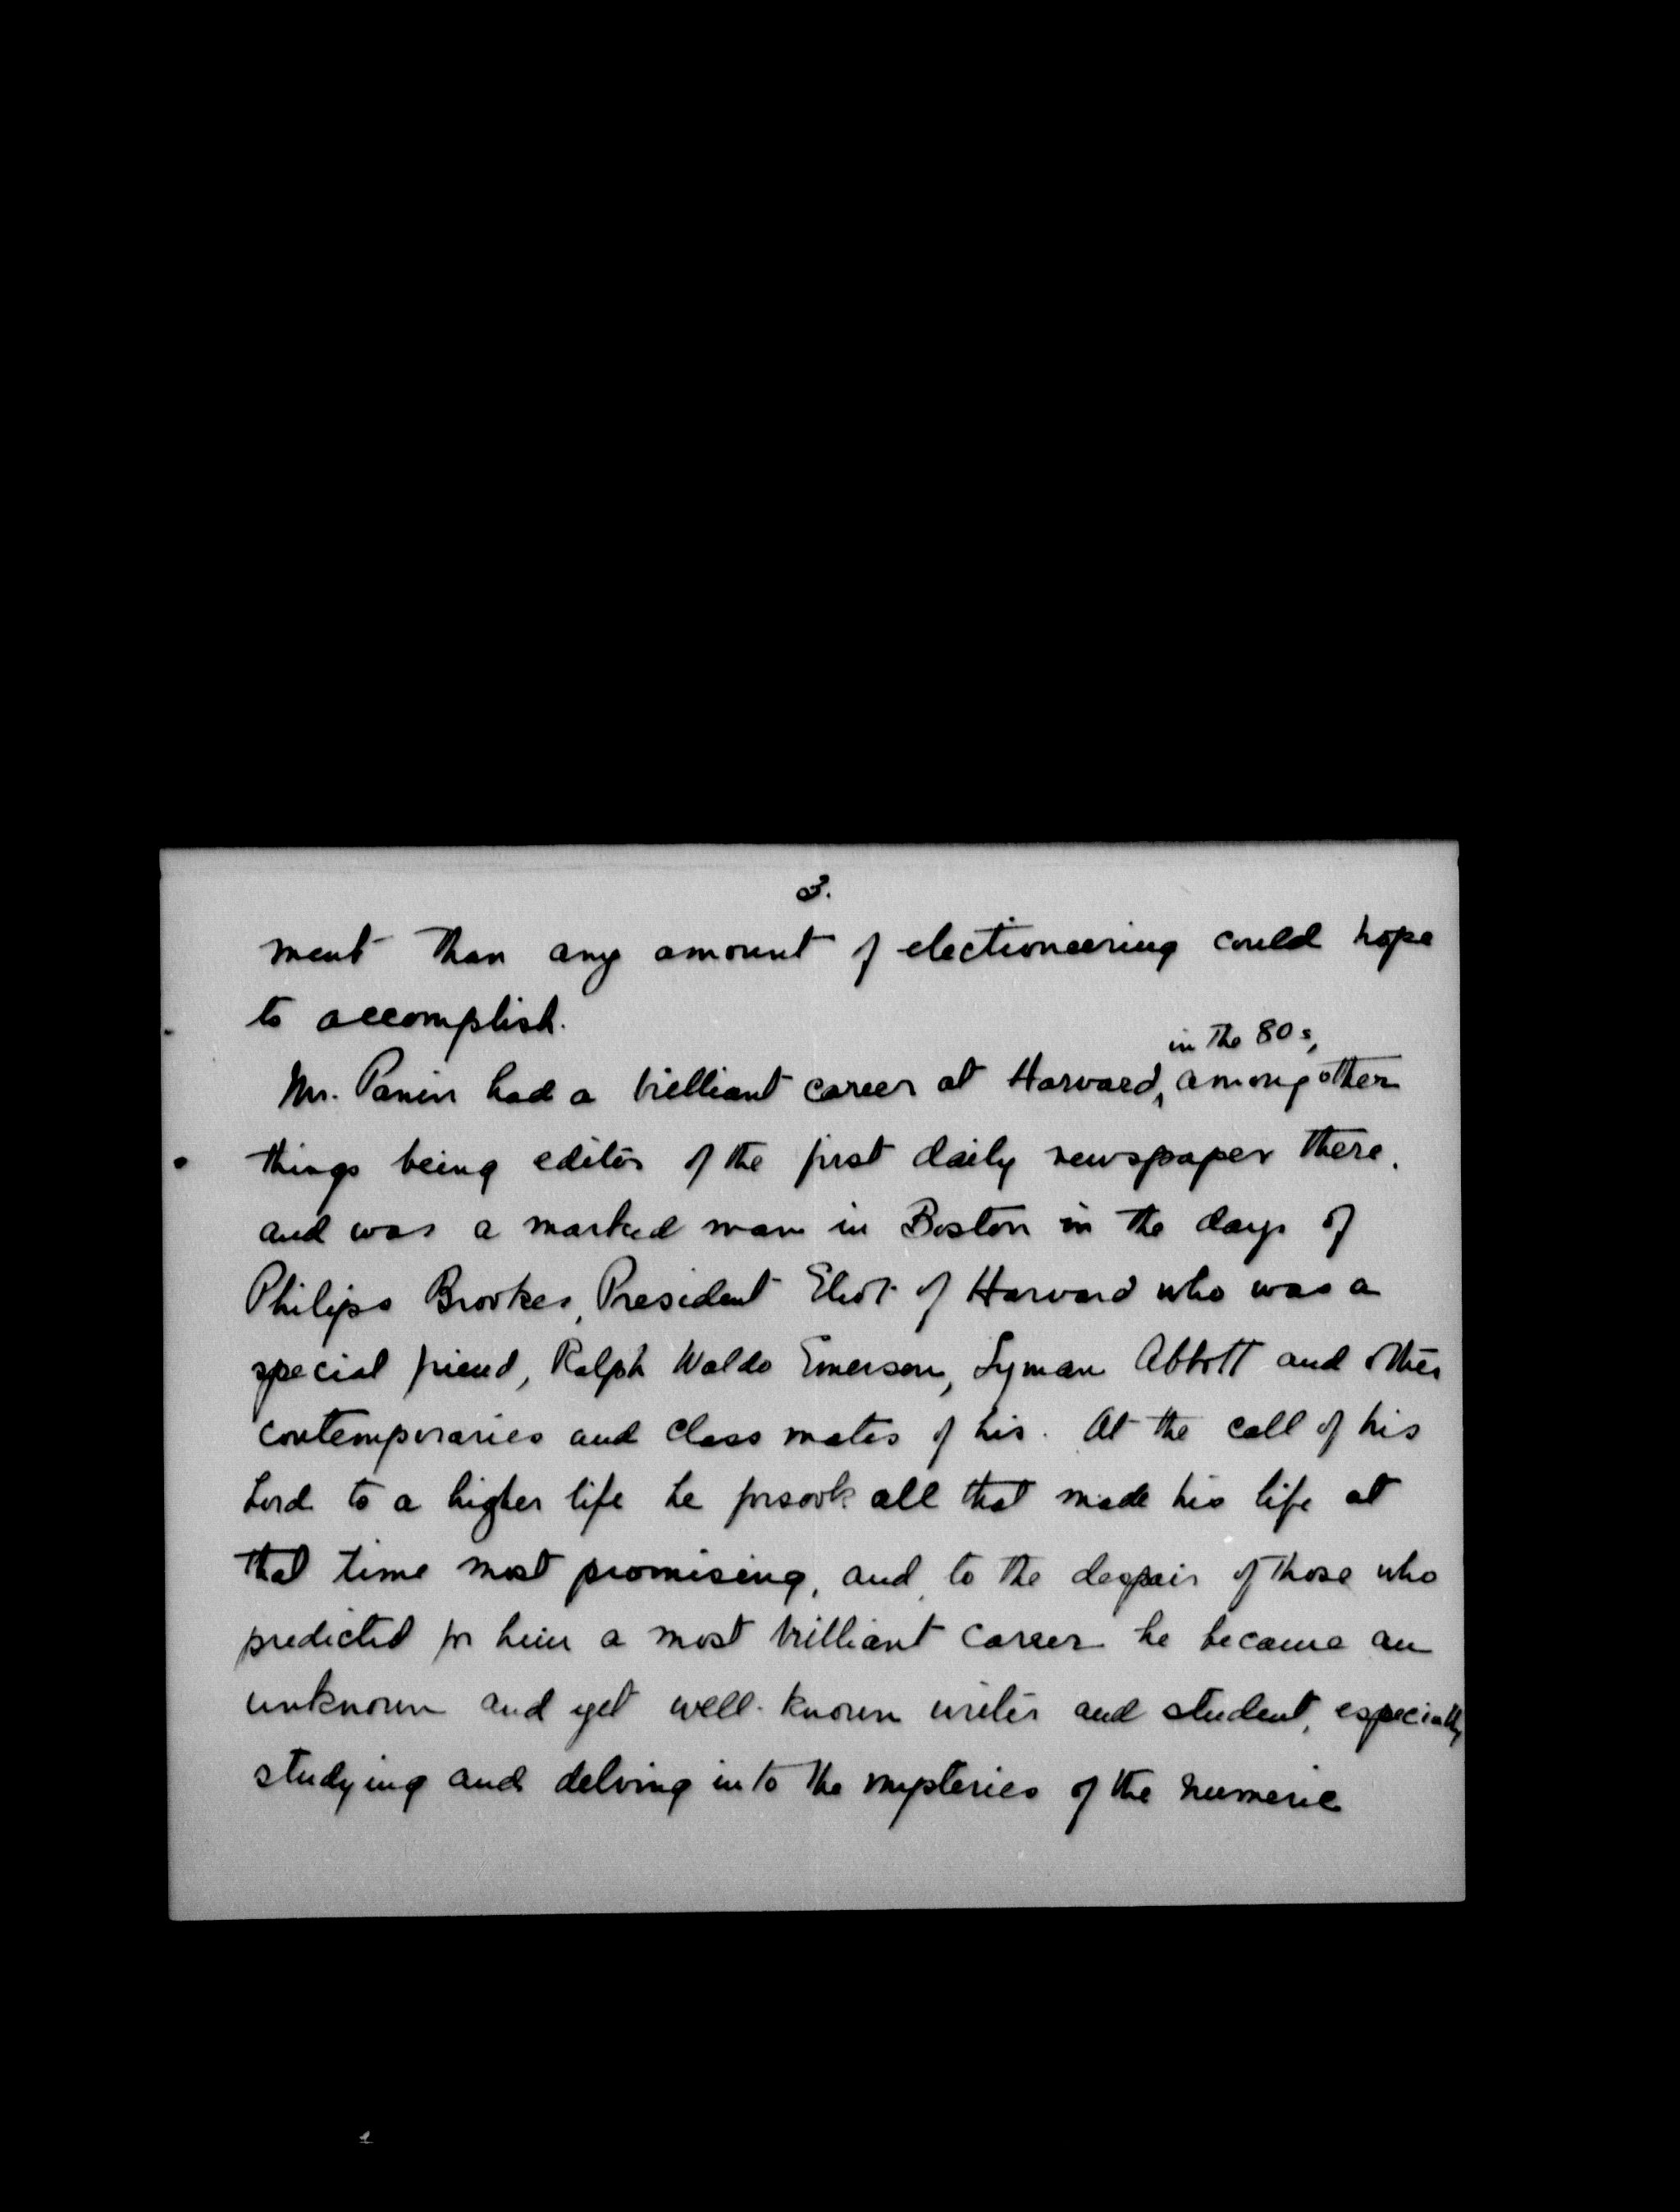 3.
ment than any amount of electioneering could hope
to accomplish.
in the 80s,
Mr. Panin had a brilliant career at Harvard, among other
things being editor of the first daily newspaper there,
and was a marked man in Boston in the days of
Philips Brookes, President Eliot of Harvard who was a
special friend, Ralph Waldo Emerson, Lyman Abbott and other
contemporaries and class mates of his. At the call of his
Lord to a higher life he forsook all that made his life at
that time most promising, and, to the despair of those who
predicted for him a most brilliant career he became an
unknown and yet well-known writer and student, especially
studying and delving into the mysteries of the numeric